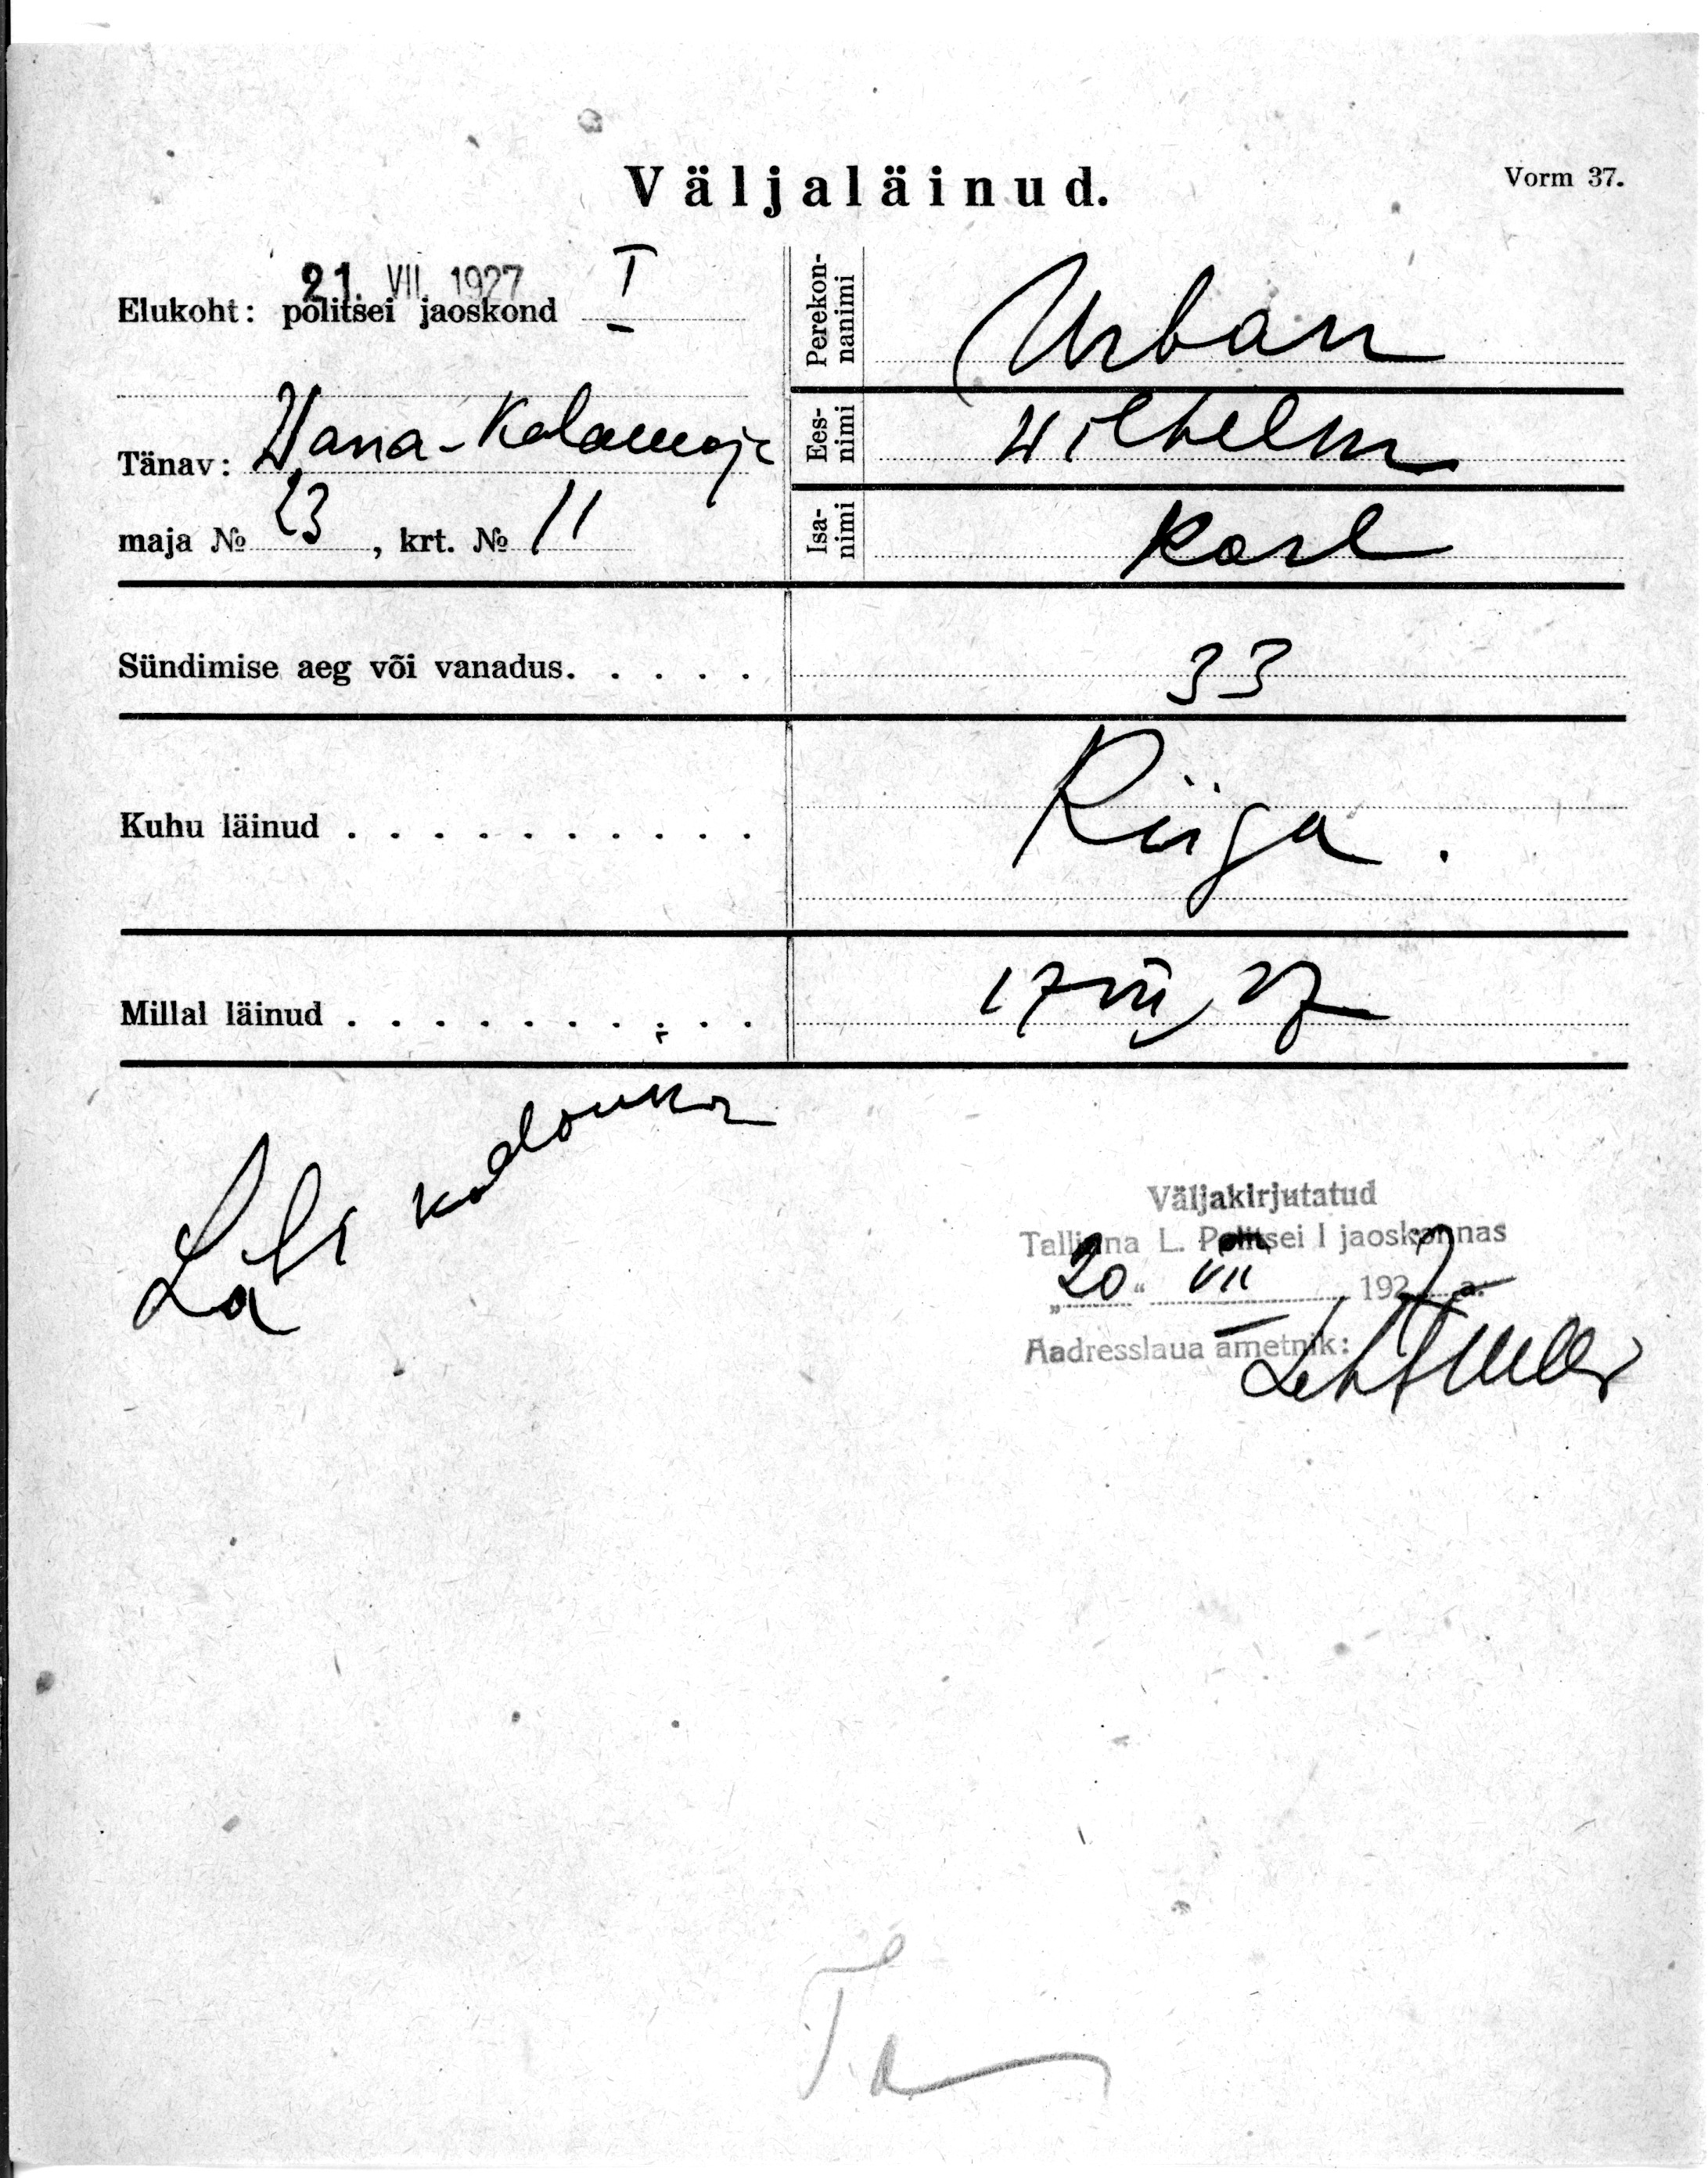 Väljaläinud.
Vorm 37.
21. VII 1927
Elukoht: politsei jaoskond I
Tänav: Wana-Kalamaja
maja № 23, krt. № 11
Perekonnanimi Urban
Eesnimi Wilhelm
Isanimi Karl
Sündimise aeg või vanadus. . . . . 33
Kuhu läinud . . . . . . . . . . Riiga.
Millal läinud . . . . . . . . . . 17 VII 27
Läti kodanik
Väljakirjutatud
Tallinna L. Politsei I jaoskonnas
„20“ VII 1927 a.
Aadresslaua ametnik: